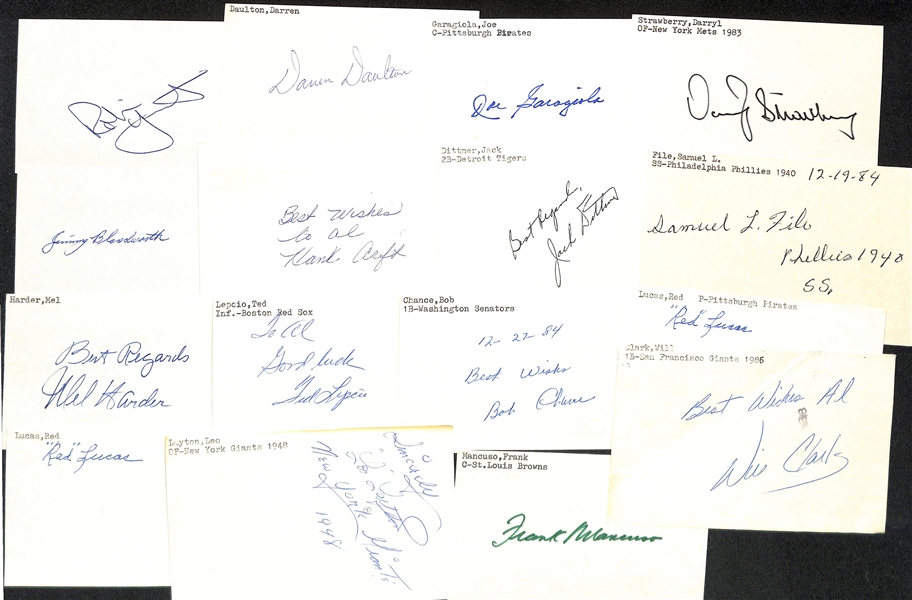 Daulton, Darren
Darren Daulton
Garagiola, Joe
C-Pittsburgh Pirates
Joe Garagiola
Strawberry, Darryl
OF-New York Mets 1983
Darryl Strawberry
Jimmy Bloodworth
Best Wishes
to Al
Hank Arft
Dittmer, Jack
2B-Detroit Tigers
Best Regards,
Jack Dittmer
File, Samuel L.
SS-Philadelphia Phillies 1940
12-19-84
Samuel L. File
Phillies 1940
SS,
Harder, Mel
Best Regards
Mel Harder
Lepcio, Ted
Inf.-Boston Red Sox
To Al
Good luck
Ted Lepcio
Chance, Bob
1B-Washington Senators
12-27-84
Best Wishes
Bob Chance
Lucas, Red P-Pittsburgh Pirates
"Red" Lucas
Clark, Will
1B-San Francisco Giants 1986
Best Wishes Al
Will Clark
Lucas, Red
"Red" Lucas
Layton, Leo
OF-New York Giants 1948
Sincerely
Layton
New York Giants
1948
Mancuso, Frank
C-St.Louis Browns
Frank Mancuso